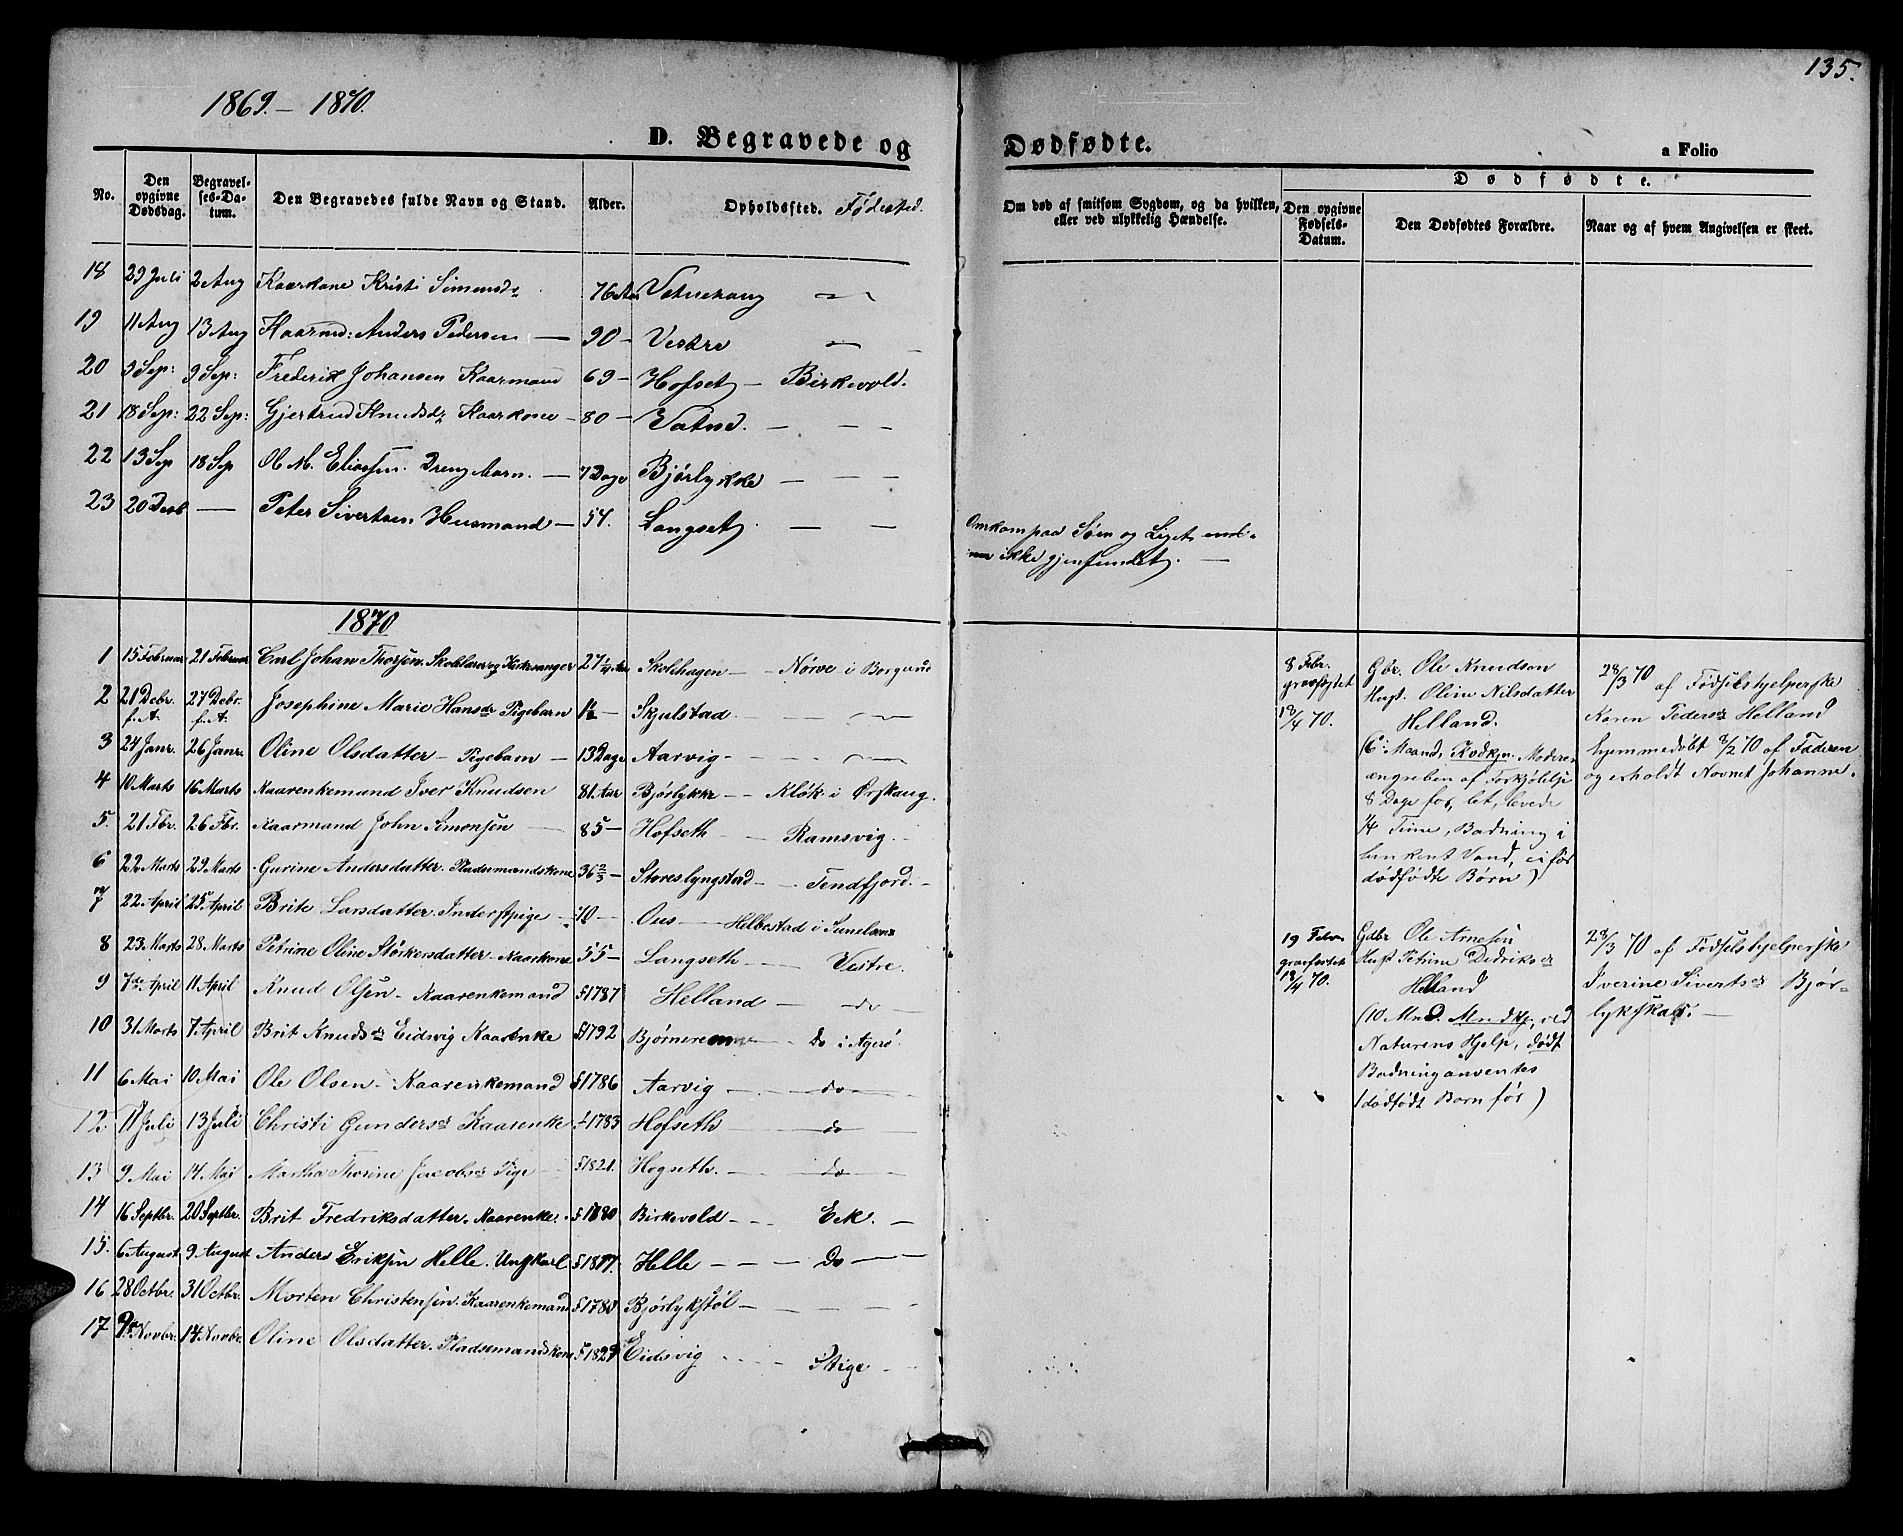 135.
1869. — 1870.
D. Begravede og Dødfødte.
a Folio
No. Den opgivne Dødsdag. Begravelses-Datum. Den Begravedes fulde Navn og Stand. Alder. Opholdsfted. Fødested. Om død af smitsom Sygdom, og da hvilken, eller ved ulykkelig Hændelse.
Dødfødte.
Den opgivne Fødsels-Datum. Den Dødfødtes Forældre. Naar og af hvem Angivelsen er skeet.
18 29 Juli 2 Aug Kaarkone Kristi Simensdr 76 Aar
19 11 Aug 13 Aug Kaarmd: Anders Pedersen — 90 — Vestre
20 9 Sep: Frederik Johansen Kaarmand 69 — Hofset — Birkevold.
21 18 Sep: 22 Sep: Gjertrud Knudsdr Kaarkone — 80 — Vatne. — — —
22 13 Sep 18 Sep Ol M. Eliassen. Dreng Barn. — 7 Dage Bjørlykke — — —
23 20 Decb — Peter Sivertsen Husmand — 54. Langset — —
Omkom paa Søen og Liget end-
nu ikke gjenfundet. —
1870
1 15 Februar 21 Februar Carl Johan Thorsen. Skolelærer og Kirkesanger 27 Aar Skolhagen — Nørve i Borgund
2 21 Debr. f.A. 27 Debr. f.A. Josephine Marie Hansdr Pigebarn Skjulstad. — —
3 24 Janr. 26 Janr. Oline Olsdatter — Pigebarn — 13 Dage Aarvig — —
4 10 Marts 16 Marts Kaarenkemand Iver Knudsen 81. Aar Bjørlykke — Kløk i Ørskaug.
5. 21 Fbr. 26 Fbr. Kaarmand John Simonsen — 85 — Hofseth — Ramsvig.
6 22 Marts 29 Marts Gurine Andersdatter. Pladsemandskone 36 2/3 Storeslyngstad — Tendfjord. —
7 22 April 25 April Brite Larsdatter. Inderstpige — 10 — Ous — Hellestad i Sunelven
8 23 Marts 28 Marts Petrine Oline Størkersdatter. Kaarkone 55 — Langseth — Vestre.
9 7de April 11 April Knud Olsen — Kaarenkemand f 1787 Helland — do —
10 31 Marts 7 April Brit Knudsdr Eidsvig Kaarenke f 1792 Bjørnerem — Do i Agerø.
11 6 Mai 10 Mai Ole Olsen — Kaarenkemand f 1786 Aarvig — do —
12. 11 Juli 13 Juli Christi Gundersdr Kaarenke f 1783 Hofseth — do
13 9 Mai 14 Mai Martha Thorine Jacobsdr Pige f 1821. Hogseth. — do —
14 16 Septbr. 20 Septbr. Brit Fredriksdatter. Kaarenke. Birkevold — Eik. —
15. 6 August 9 August Anders Eriksen Helle. Ungkarl Helle — — — Do —
16 28 Octbr. 31 Octbr. Morten Christensen. Kaarenkemand f 1780 Bjørlykstøl — — — —
17 9de Novbr. 14 Novbr. Oline Olsdatter. Pladsemandskone Eidsvig — Stige — —
8 Febr. Gbr. Ole Knudson 28/3 70 af Fødselshjelperske
gravfæstet Hust. Oline Nilsdatter Karen Pedersdr Helland
18/4 70. Helland. hjemmedøbt 8/2 70 af Faderen
(6 Maand, Kvdkjn. Moderen og erholdt Navnet Johanne.
angreben af Forkjølelse
8 Dage før, let, levede
1/4 Time, Badning i
lunkent Vand, ei før
dødfødte Børn)
19 Febr. Gdbr Ole Arnesen 28/3 70 af Fødselshjelperske
gravfæstet Hust Petrine Didriksdr Iverine Sivertsdr Bjør-
18/4 70. Helland lykskal. —
(10 Mnd. Mandkjn, ved
Naturens Hjelp, dødt
Badning anventes
(dødfødt Barn før)